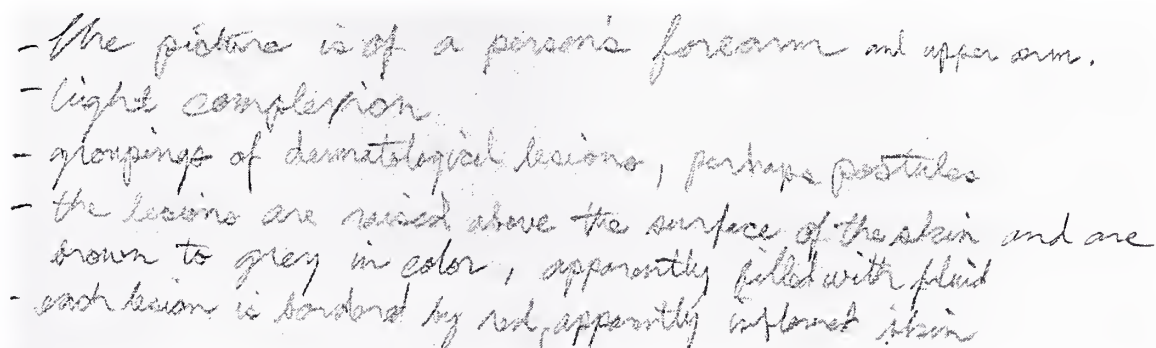 - the picture is of a person's forearm and upper arm.
- light complexion
- groupings of dermatological lesions, perhaps postules
- the lesions are raised above the surface of the skin and are
brown to grey in color, apparently filled with fluid
- each lesion is bordered by red, apparently inflamed skin